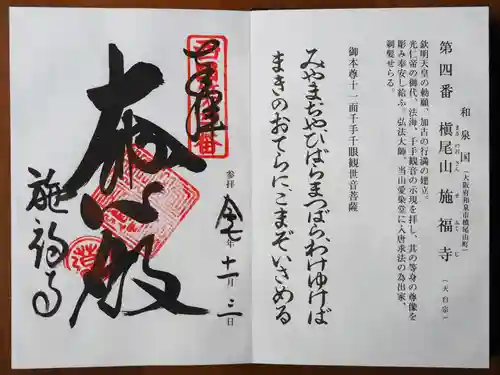 第四番 槇尾山 施福寺 (天台宗)
まきのおさん せふくじ
和泉国 (大阪府和泉市槇尾山町)
欽明天皇の勅願、加古の行満の建立。
光仁帝の御代、法海、千手観音の示現を拝し、其の等身の尊像を
彫み奉安し給ふ。弘法大師、当山愛染堂に入唐求法の為出家、
剃髪せらる。
御本尊十一面千手千眼観世音菩薩
みやまぢやひばらまつばらわけゆけば
まきのおてらにこまぞいさめる
参拝 令七年十一月三日
大悲殿
施福寺